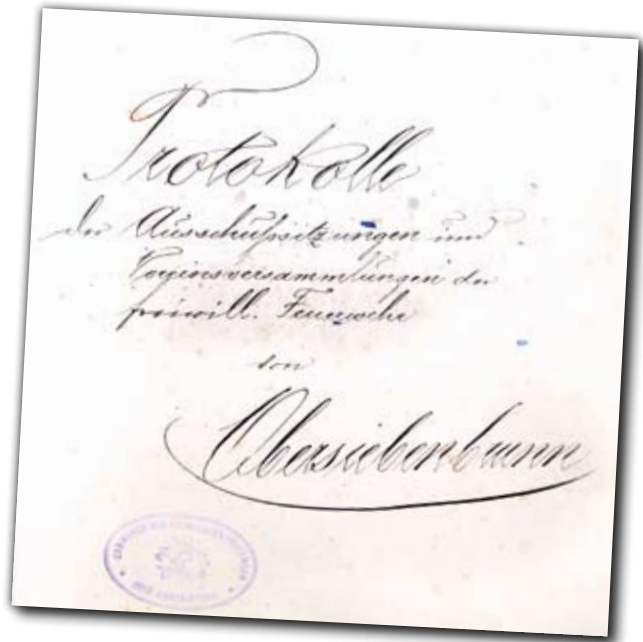 Protokolle
der Ausschußsitzungen und
Vereinsversammlungen der
freiwill. Feuerwehr
von
Obersiebenbrunn